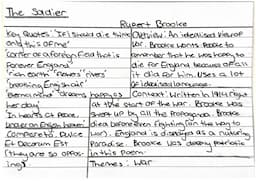 The Soldier
Rupert Brooke
Key Quotes: 'If I should die think
only this of me'
'corner of a foreign field that is
forever England'
'rich earth' 'flowers' 'rivers'
'breathing English air'
'eternal mind' 'dreams happy as
her day'
In hearts at peace,
under an English heaven'
Compare to: Dulce
Et Decorum Est
(they are so oppos-
ing)
Overview: An idealised view of
war. Brooke wants people to
remember that he was happy to
die for England because of all
it did for him. Uses a lot
of idealised language.
Context: Written in 1914 right
at the start of the war. Brooke was
swept up by all the propaganda. Brooke
died before even fighting (on the way to
war). England is displayed as a nurturing
Paradise. Brooke was deeply patriotic
in this poem.
Themes: War